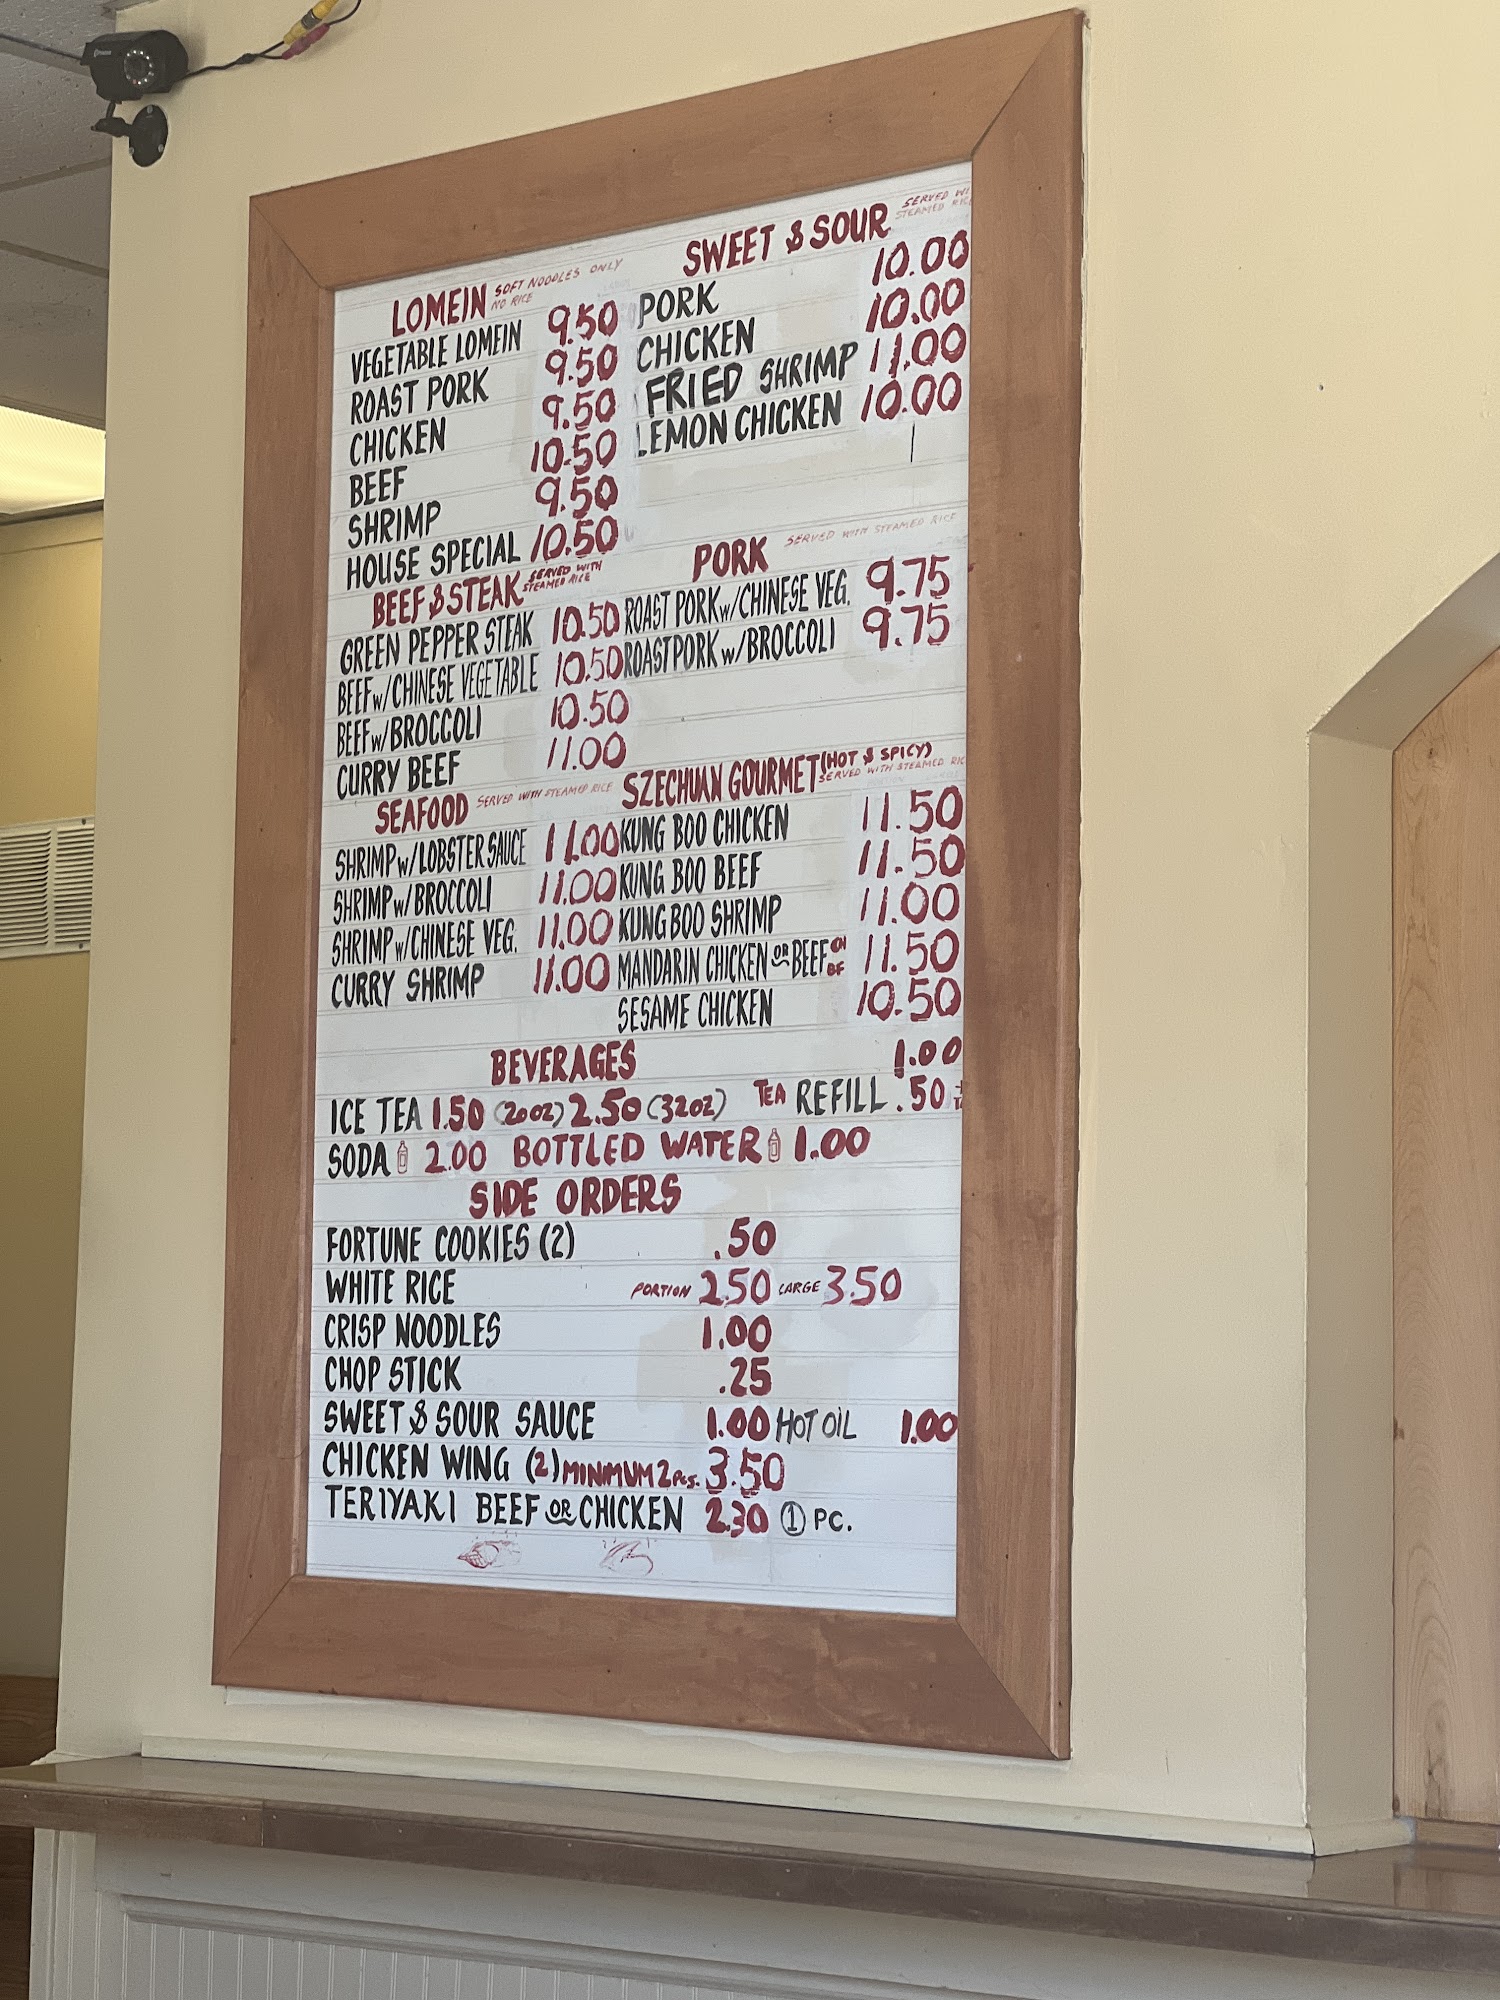 LOMEIN SOFT NOODLES ONLY
NO RICE
VEGETABLE LOMEIN 9.50
ROAST PORK 9.50
CHICKEN 9.50
BEEF 10.50
SHRIMP 9.50
HOUSE SPECIAL 10.50
BEEF & STEAK SERVED WITH
STEAMED RICE
GREEN PEPPER STEAK 10.50
BEEF w/CHINESE VEGETABLE 10.50
BEEF w/BROCCOLI 10.50
CURRY BEEF 11.00
SEAFOOD SERVED WITH STEAMED RICE
SHRIMP w/LOBSTER SAUCE 11.00
SHRIMP w/BROCCOLI 11.00
SHRIMP w/CHINESE VEG. 11.00
CURRY SHRIMP 11.00
SWEET & SOUR SERVED WI
STEAMED RIC
PORK 10.00
CHICKEN 10.00
FRIED SHRIMP 11.00
LEMON CHICKEN 10.00
PORK SERVED WITH STEAMED RICE
ROAST PORK w/CHINESE VEG. 9.75
ROAST PORK w/BROCCOLI 9.75
SZECHUAN GOURMET (HOT & SPICY)
SERVED WITH STEAMED RIC
KUNG BOO CHICKEN 11.50
KUNG BOO BEEF 11.50
KUNG BOO SHRIMP 11.00
MANDARIN CHICKEN OR BEEF CH BF 11.50
SESAME CHICKEN 10.50
BEVERAGES 1.00
ICE TEA 1.50 (20oz) 2.50 (32oz) TEA REFILL .50
SODA 2.00 BOTTLED WATER 1.00
SIDE ORDERS
FORTUNE COOKIES (2) .50
WHITE RICE PORTION 2.50 LARGE 3.50
CRISP NOODLES 1.00
CHOP STICK .25
SWEET & SOUR SAUCE 1.00 HOT OIL 1.00
CHICKEN WING (2) MINIMUM 2 PCS. 3.50
TERIYAKI BEEF OR CHICKEN 2.30 1 PC.